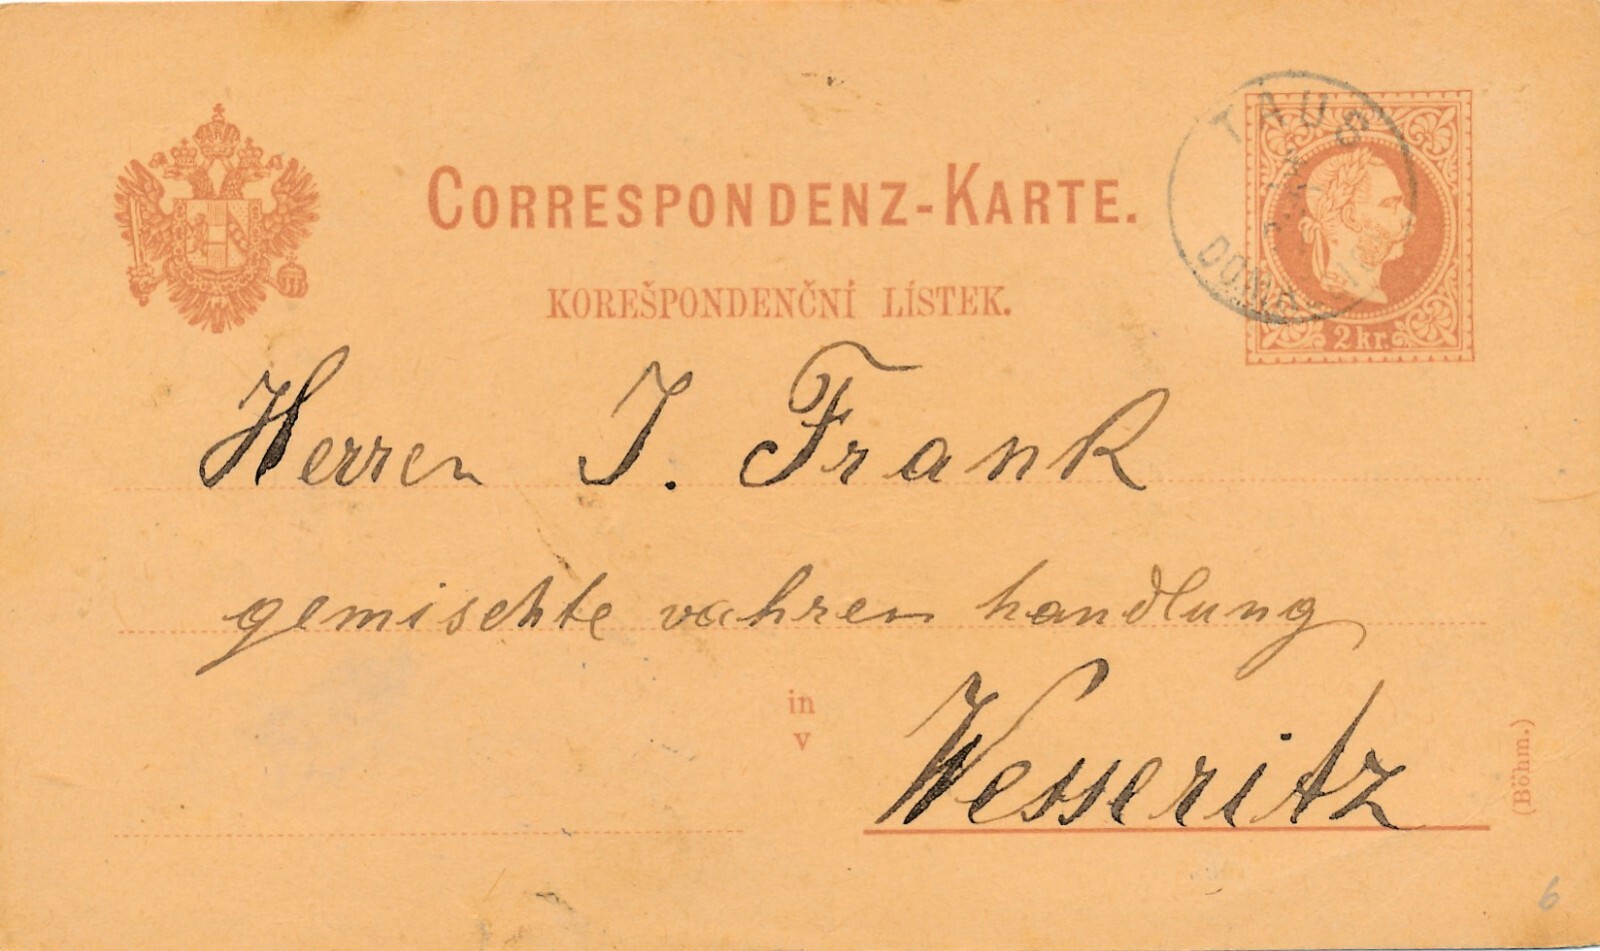 CORRESPONDENZ-KARTE.
KOREŠPONDENČNÍ LÍSTEK.
TAUS
2 kr.
Herren J. Frank
gemischte vahren handlung
in
v
Wesseritz
(Böhm.)
6